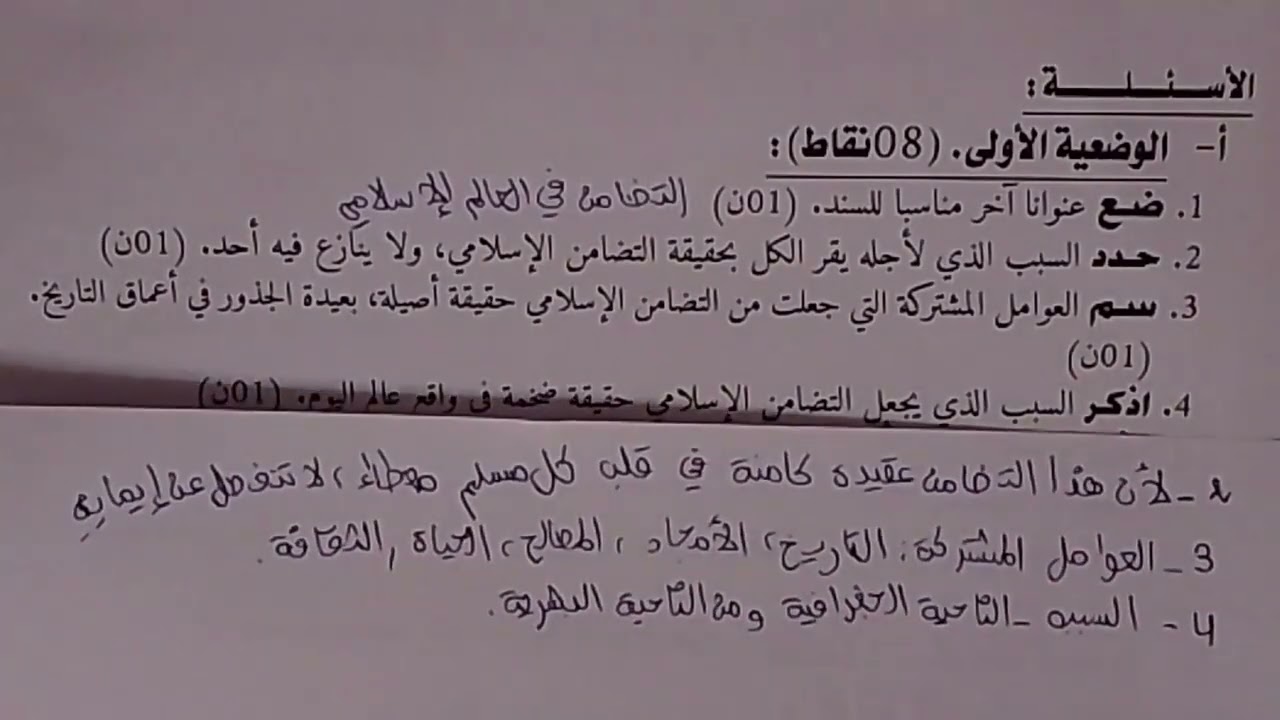 الأسئلة:
أ- الوضعية الأولى. (08نقاط):
1. ضع عنوانا آخر مناسبا للسند. (01ن) التضامن في العالم الإسلامي
2. حدد السبب الذي لأجله يقر الكل بحقيقة التضامن الإسلامي، ولا ينازع فيه أحد. (01ن)
3. سم العوامل المشتركة التي جعلت من التضامن الإسلامي حقيقة أصيلة، بعيدة الجذور في أعماق التاريخ.
(01ن)
4. اذكر السبب الذي يجعل التضامن الإسلامي حقيقة ضخمة في واقع عالم اليوم. (01ن)
2 - لأن هذا التضامن عقيدة كامنة في قلب كل مسلم ، لا تنفصل عن إيمانه
3 - العوامل المشتركة: التاريخ، الأمجاد، المصالح، الحياة، الثقافة.
4 - السبب - الناحية الجغرافية ومن الناحية البشرية.